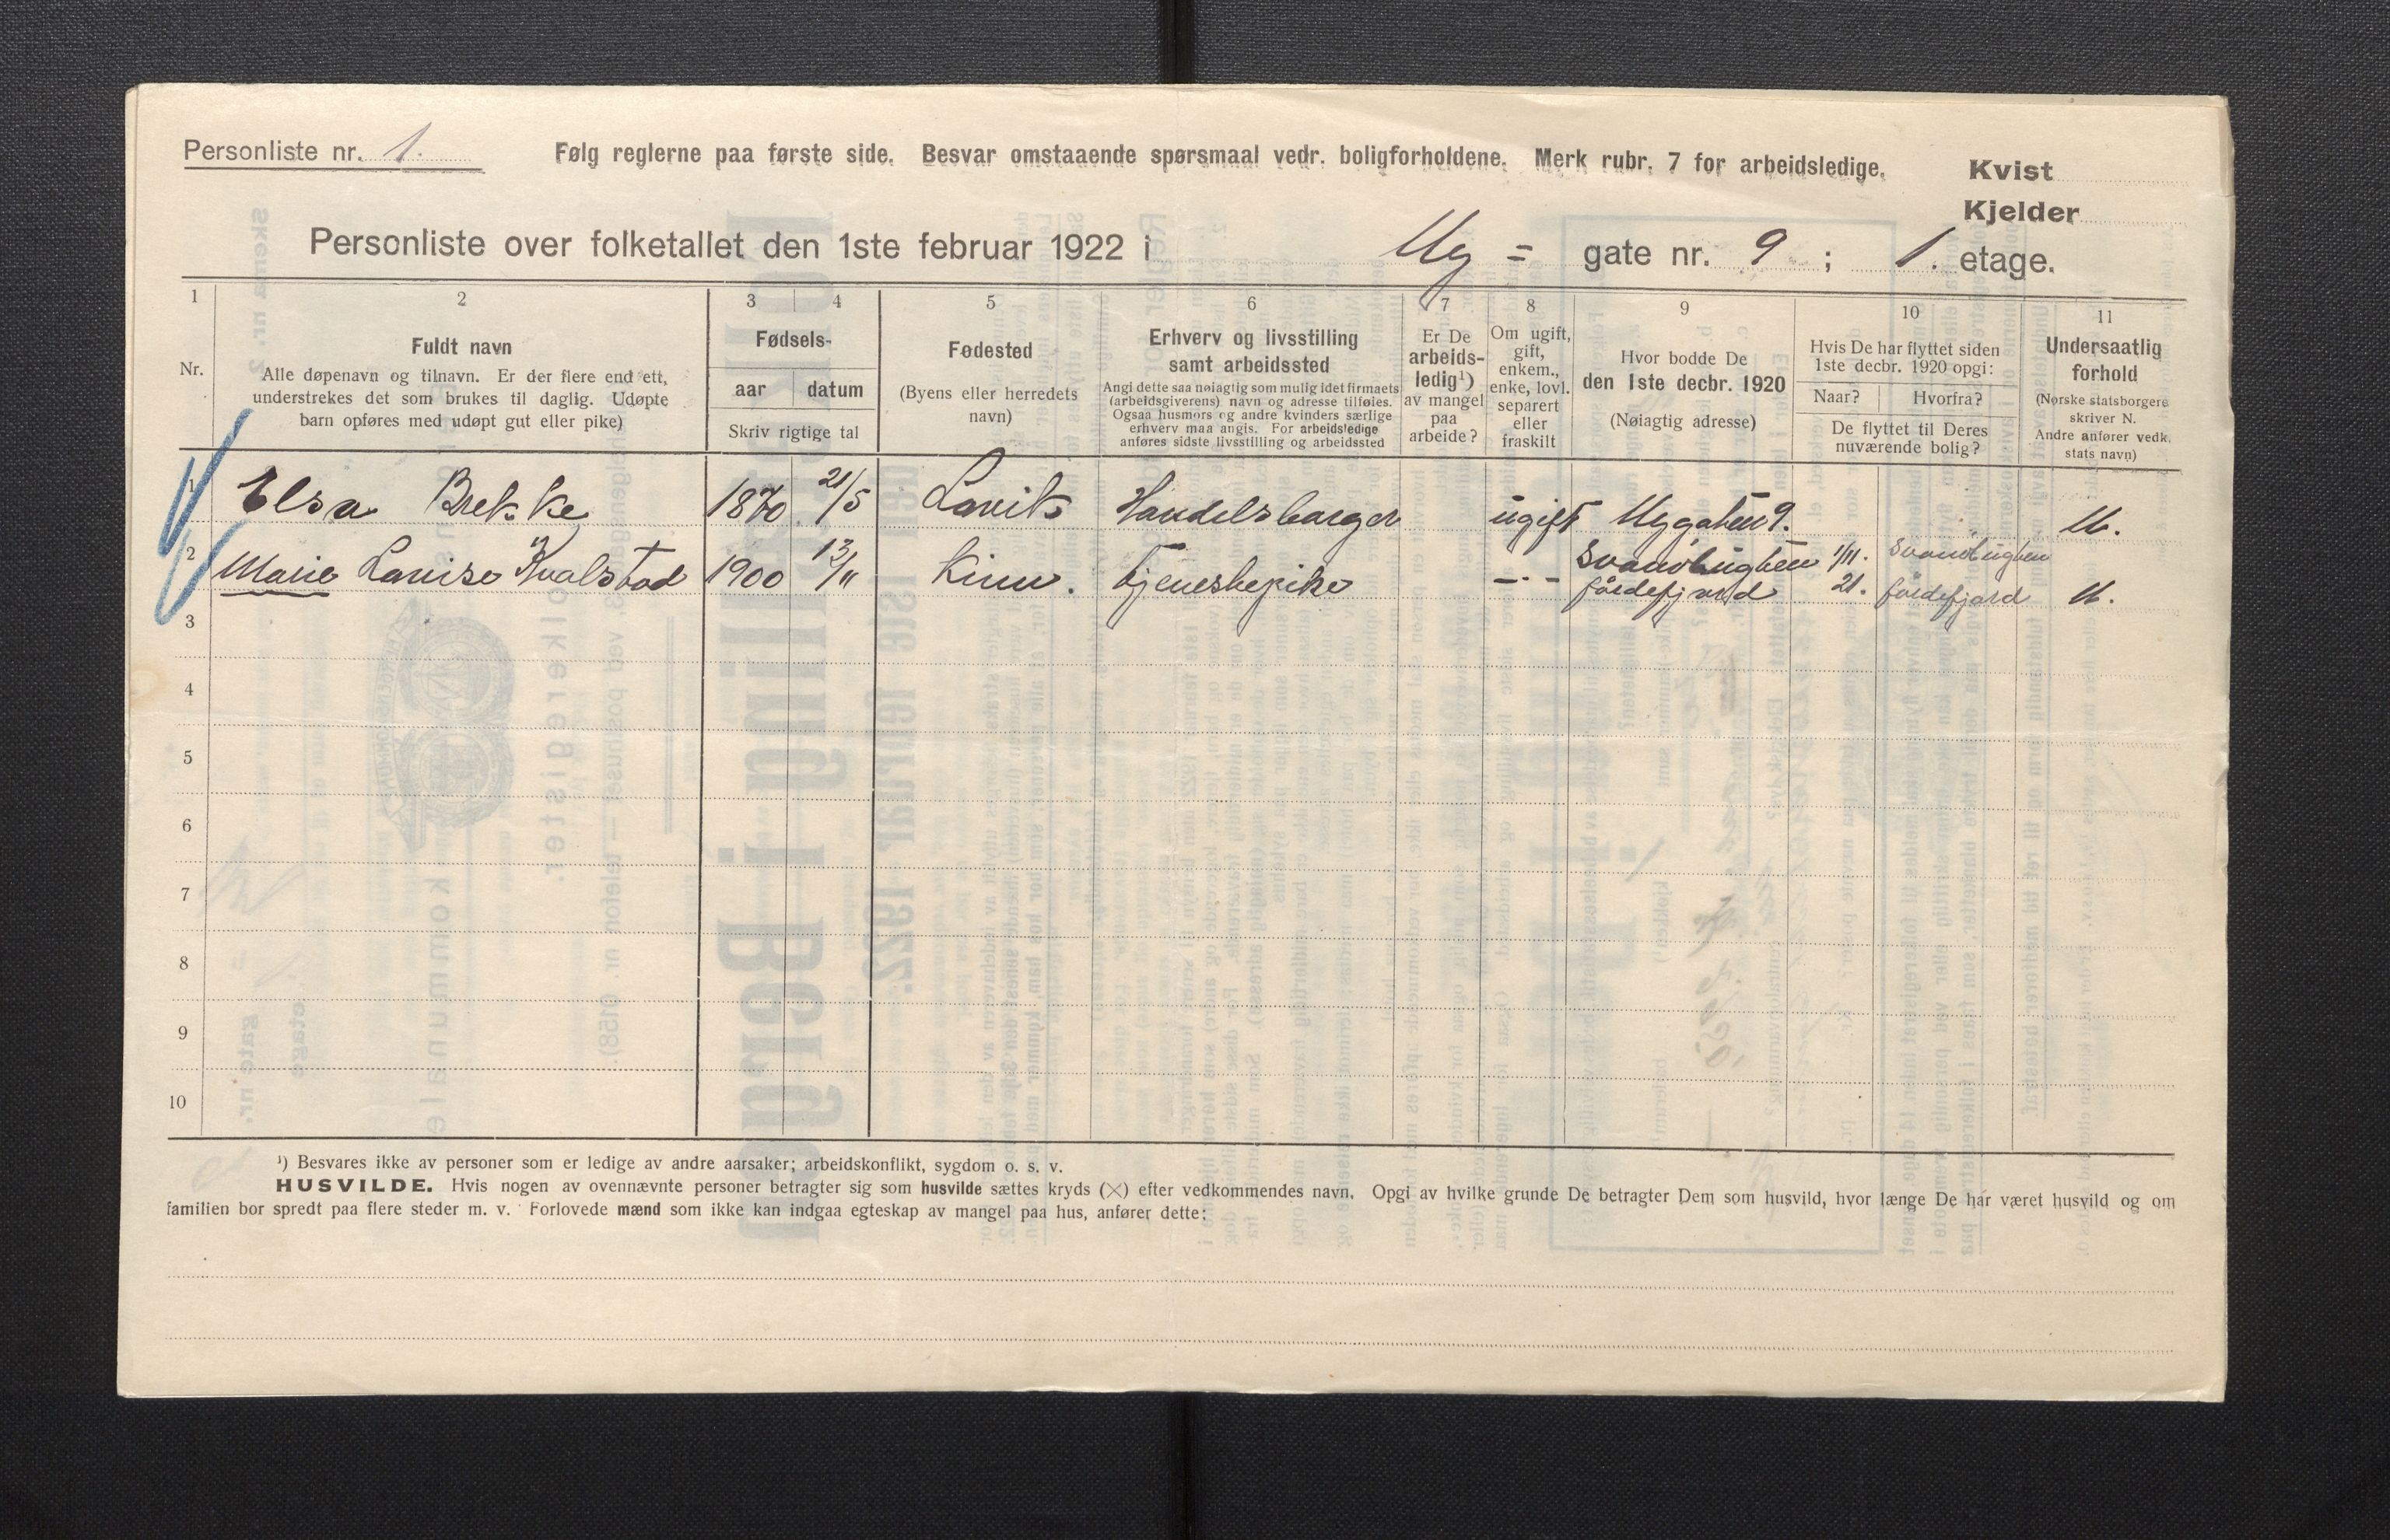 Personliste nr. 1.
Følg reglerne paa første side. Besvar omstaaende spørsmaal vedr. boligforholdene. Merk rubr. 7 for arbeidsledige.
Kvist
Kjelder
Personliste over folketallet den 1ste februar 1922 i Ny = gate nr. 9 ; 1. etage.
1 2 3 4 5 6 7 8 9 10 11
Nr.
Fuldt navn
Alle døpenavn og tilnavn. Er der flere end ett,
understrekes det som brukes til daglig. Udøpte
barn opføres med udøpt gut eller pike)
Fødsels-
aar datum
Skriv rigtige tal
Fødested
(Byens eller herredets
navn)
Erhverv og livsstilling
samt arbeidssted
Angi dette saa nøiagtig som mulig idet firmaets
(arbeidsgiverens) navn og adresse tilføies.
Ogsaa husmors og andre kvinders særlige
erhverv maa angis. For arbeidsledige
anføres sidste livsstilling og arbeidssted
Er De
arbeids-
ledig¹)
av mangel
paa
arbeide?
Om ugift,
gift,
enkem.,
enke, lovl.
separert
eller
fraskilt
Hvor bodde De
den 1ste decbr. 1920
(Nøiagtig adresse)
Hvis De har flyttet siden
1ste decbr. 1920 opgi:
Naar? Hvorfra?
De flyttet til Deres
nuværende bolig?
Undersaatlig
forhold
(Norske statsborgere
skriver N.
Andre anfører vedk.
stats navn)
1 Elsa Brekke 1870 21/5 Lavik Handelsborger ugift Nygaten 9. N.
2 Marie Lovise Kvalstad 1900 13/11 Kinn. Tjenestepike —·— Svandbugten førdefjord 1/11. 21. Svandbugten førdefjord N.
3
4
5
6
7
8
9
10
¹) Besvares ikke av personer som er ledige av andre aarsaker; arbeidskonflikt, sygdom o. s. v.
HUSVILDE. Hvis nogen av ovennævnte personer betragter sig som husvilde sættes kryds (×) efter vedkommendes navn. Opgi av hvilke grunde De betragter Dem som husvild, hvor længe De har været husvild og om
familien bor spredt paa flere steder m. v. Forlovede mænd som ikke kan indgaa egteskap av mangel paa hus, anfører dette: